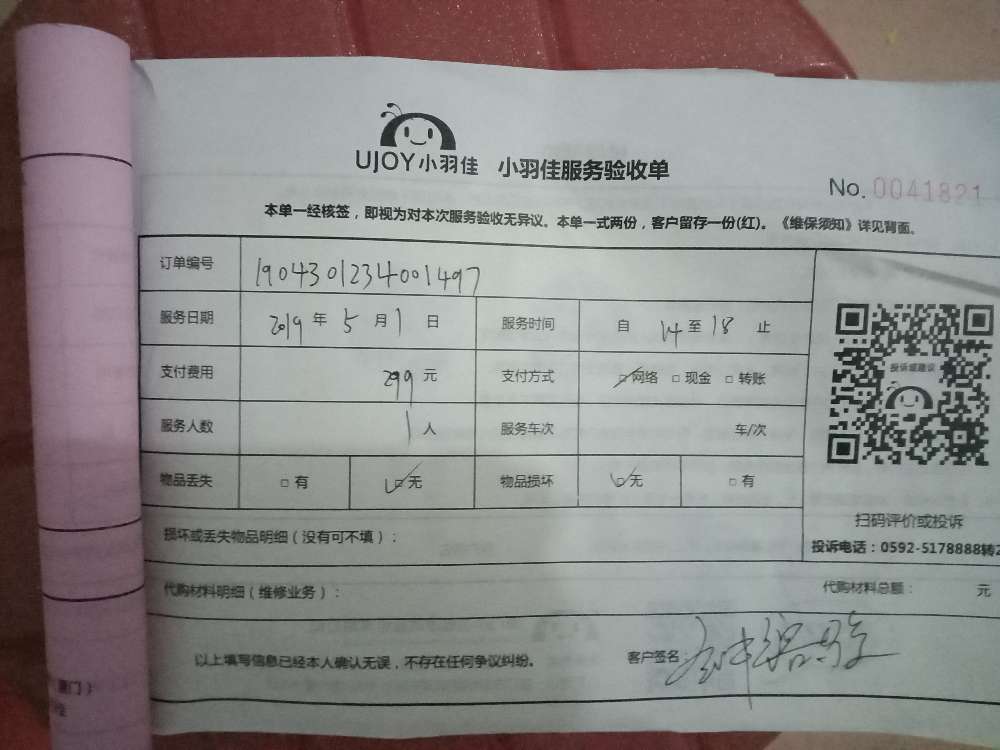 UJOY小羽佳 小羽佳服务验收单
No. 0041821
本单一经核签，即视为对本次服务验收无异议。本单一式两份，客户留存一份(红)。《维保须知》详见背面。
订单编号 1904301234001497
服务日期 2019 年 5 月 1 日 服务时间 自 14 至 18 止
支付费用 299 元 支付方式 □网络 □现金 □转账
服务人数 1 人 服务车次 车/次
物品丢失 □有 □无 物品损坏 □无 □有
投诉或建议
扫码评价或投诉
投诉电话：0592-5178888转2
损坏或丢失物品明细（没有可不填）：
代购材料明细（维修业务）： 代购材料总额： 元
以上填写信息已经本人确认无误，不存在任何争议纠纷。 客户签名：
厦门）